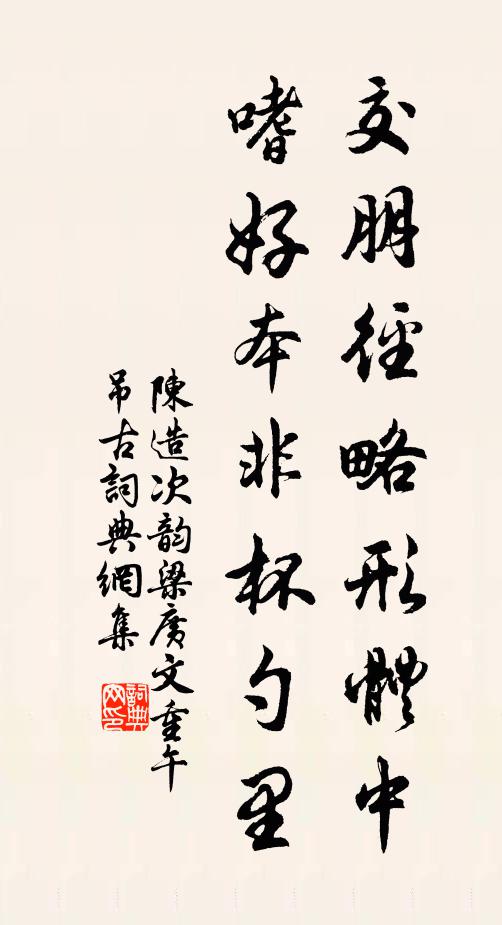 交朋徑略形體中
嗜好本非杯勺里
陳造次韵梁廣文重午
吊古詞典網集
詞典
网印